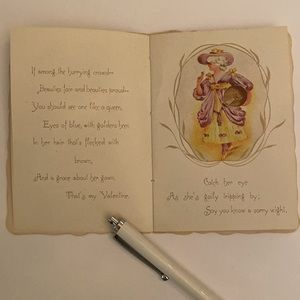 If among the hurrying crowd—
Beauties fair and beauties proud—
You should see one like a queen,
Eyes of blue, with golden sheen
In her hair that's flecked with
brown,
And a grace about her gown,
That's my Valentine.
Catch her eye
As she's gaily tripping by;
Say you know a sorry wight,